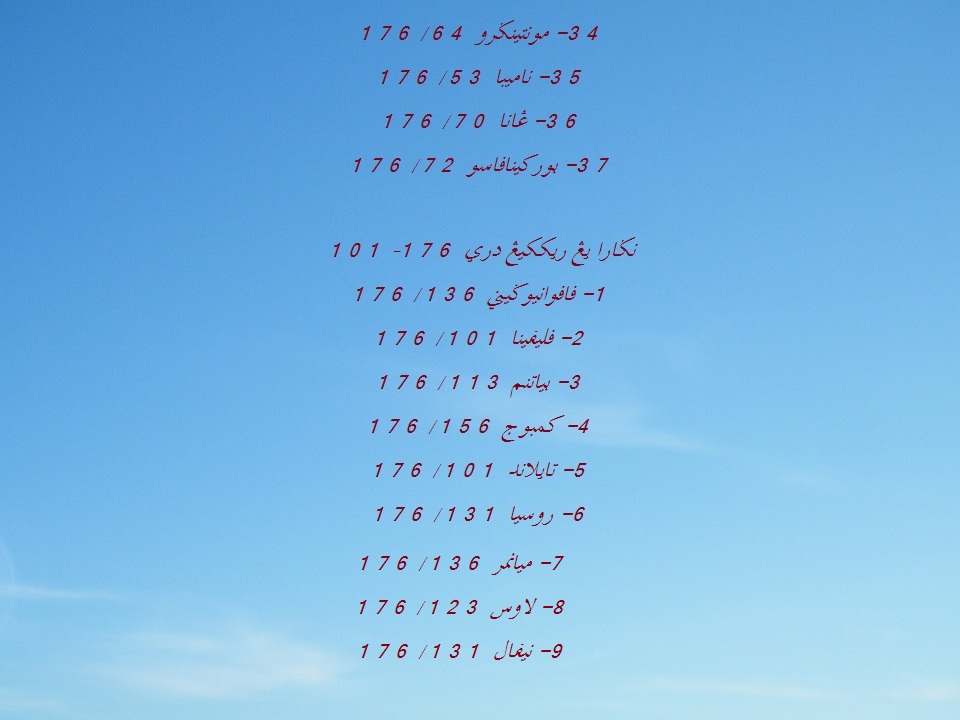 34– مونتينݢرو 64/ 176
35– ناميبا 53/ 176
36– ڠانا 70/ 176
37– بوركينافاسو 72/ 176
نݢارا يڠ ريككيڠ دري 176- 101
1– ڤاڤوانيوݢيني 136/ 176
2– فليڤينا 101/ 176
3– بياتنم 113/ 176
4– كمبوج 156/ 176
5– تايلاند 101/ 176
6– روسيا 131/ 176
7– ميانمر 136/ 176
8– لاوس 123/ 176
9– نيڤال 131/ 176